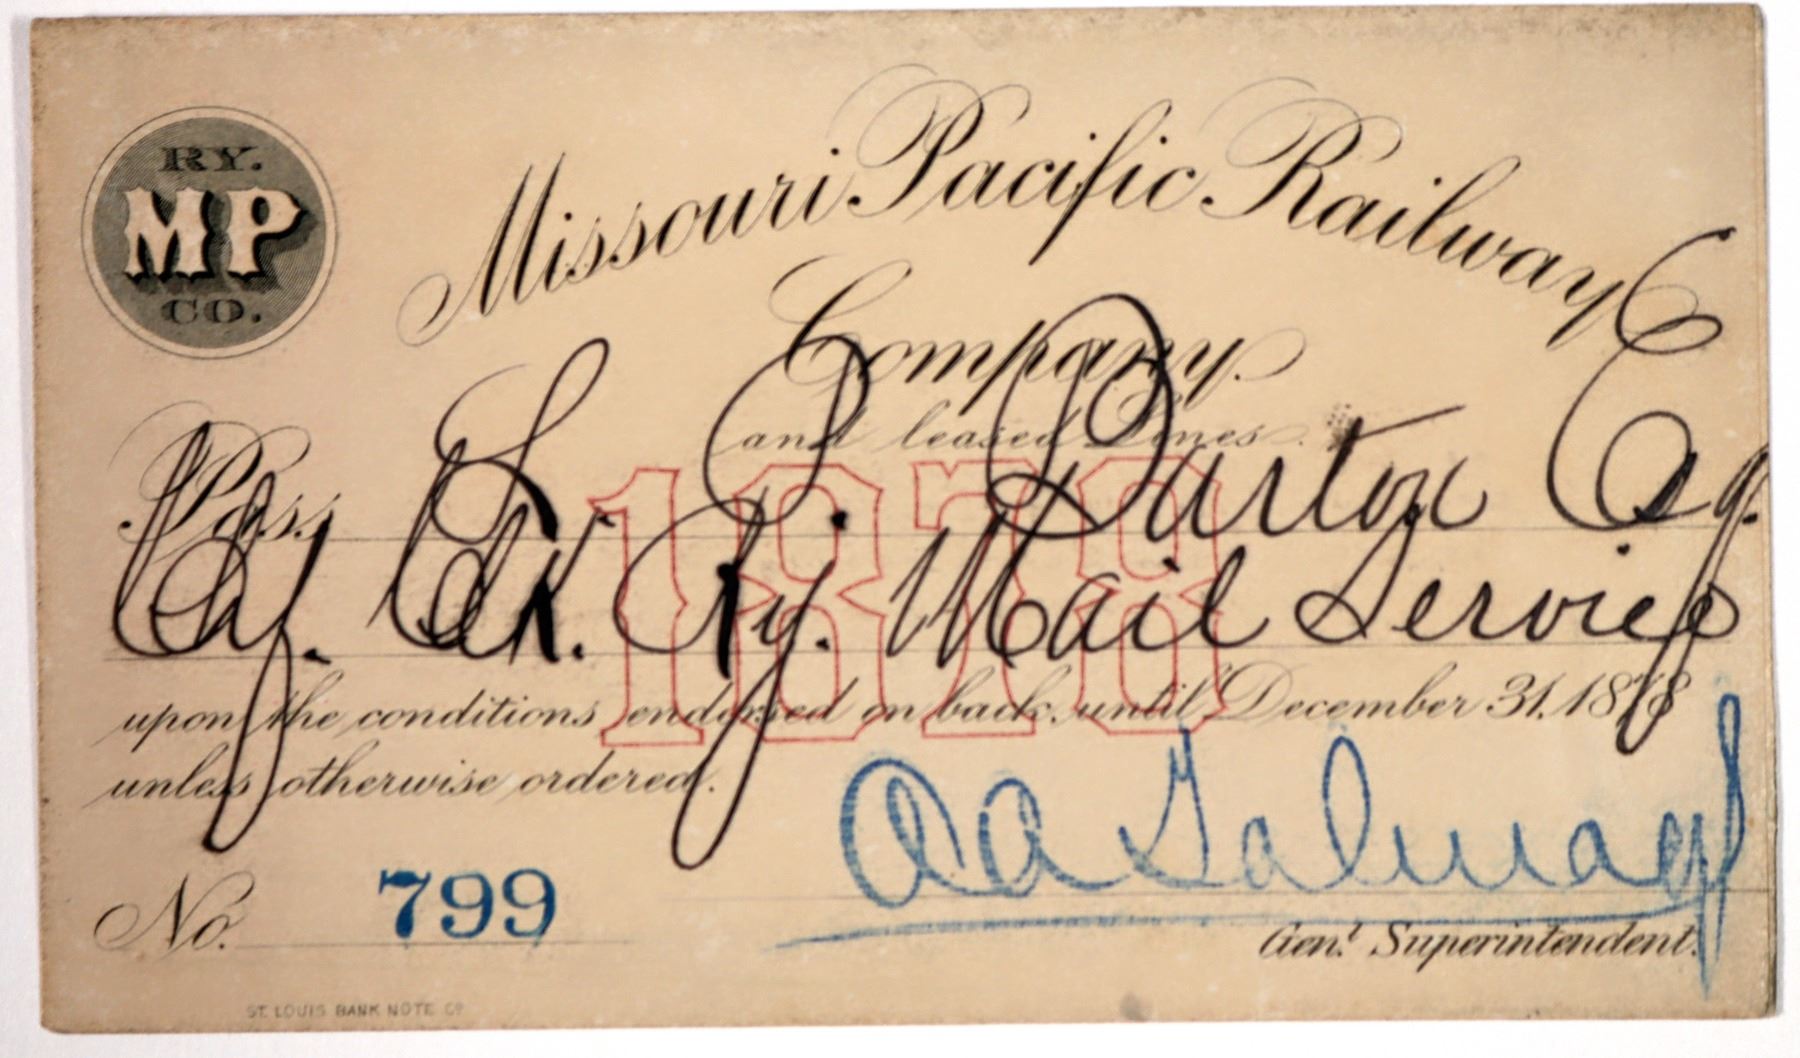 RY.
MP
CO.
Missouri Pacific Railway
Company.
and leased Lines.
1878
Pass S. P. Barton Esq.
Chf. Clk. Ry. Mail Service
upon the conditions endorsed on back, until December 31, 1878
unless otherwise ordered.
A A Talmage
No. 799
Gen'l Superintendent.
ST. LOUIS BANK NOTE CO